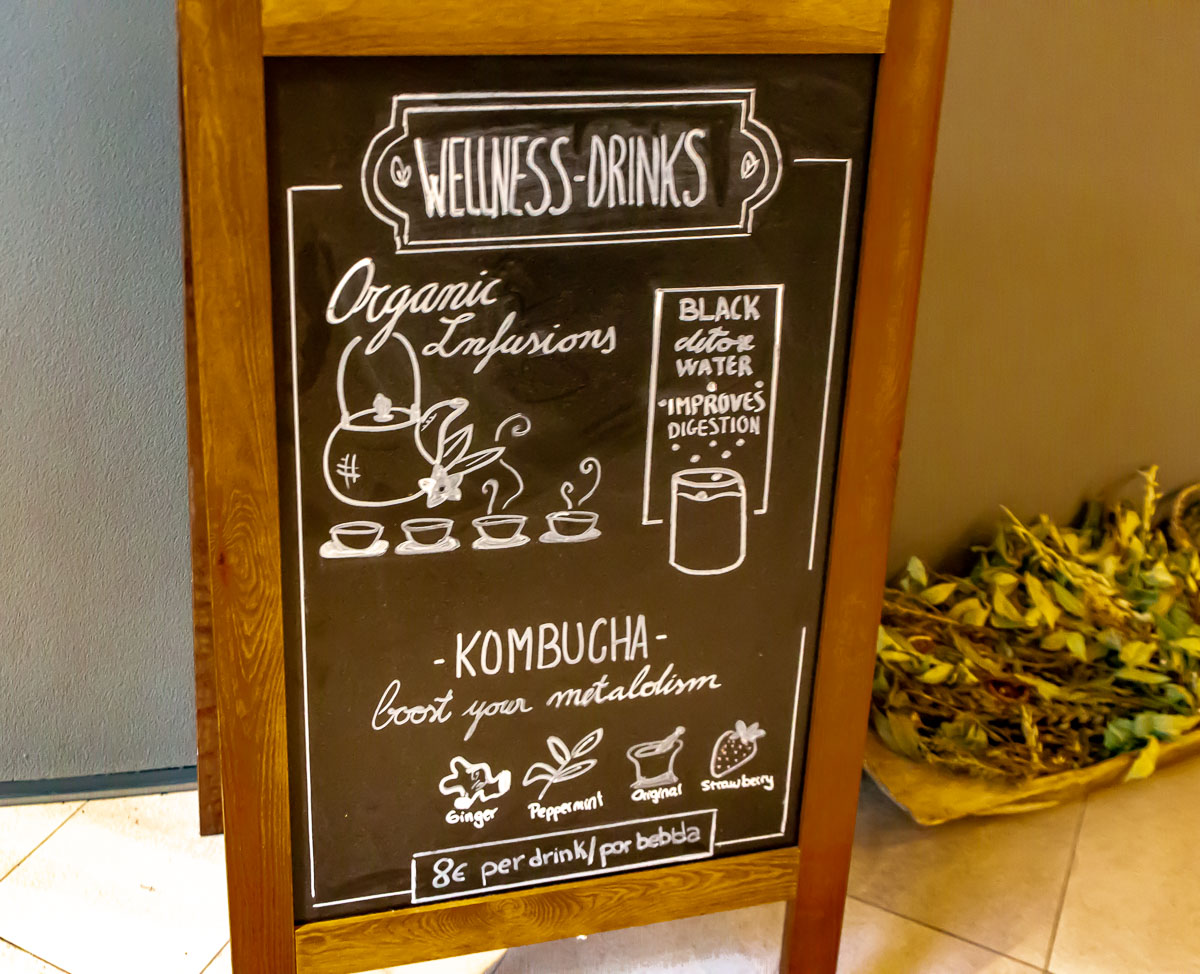 WELLNESS-DRINKS
Organic
Infusions
BLACK
detox
WATER
IMPROVES
DIGESTION
- KOMBUCHA -
boost your metaldism
Ginger
Peppermint
Original
Strawberry
8€ per drink/por bebida